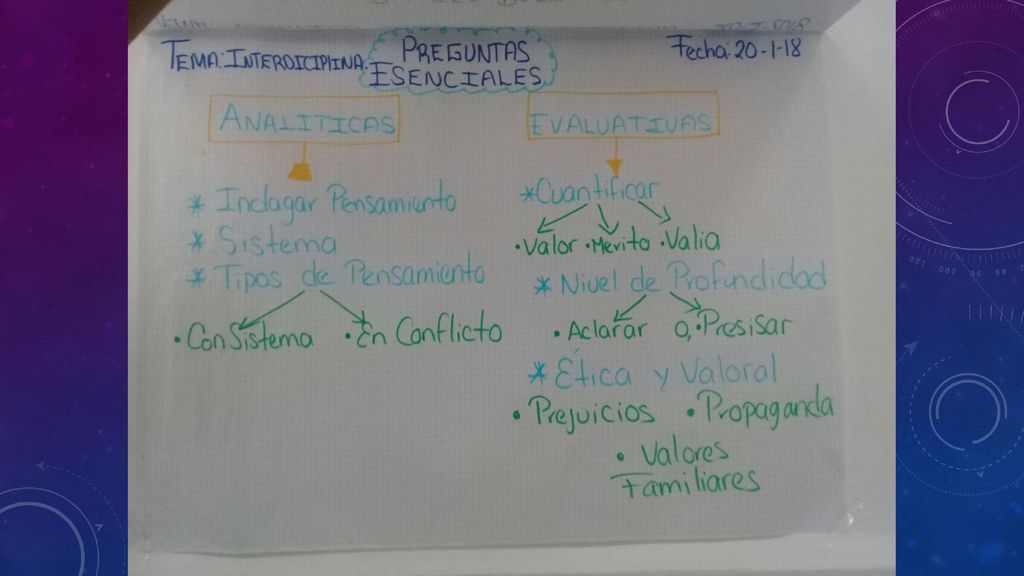 TEMA: INTERDICIPLINA
PREGUNTAS
ESENCIALES
Fecha: 20-1-18
ANALITICAS
* Indagar Pensamiento
* Sistema
* Tipos de Pensamiento
• Con Sistema • En Conflicto
EVALUATIVAS
* Cuantificar
• Valor • Merito • Valia
* Nivel de Profundidad
• Aclarar o, • Presisar
* Ética y Valoral
• Prejuicios • Propaganda
• Valores
Familiares